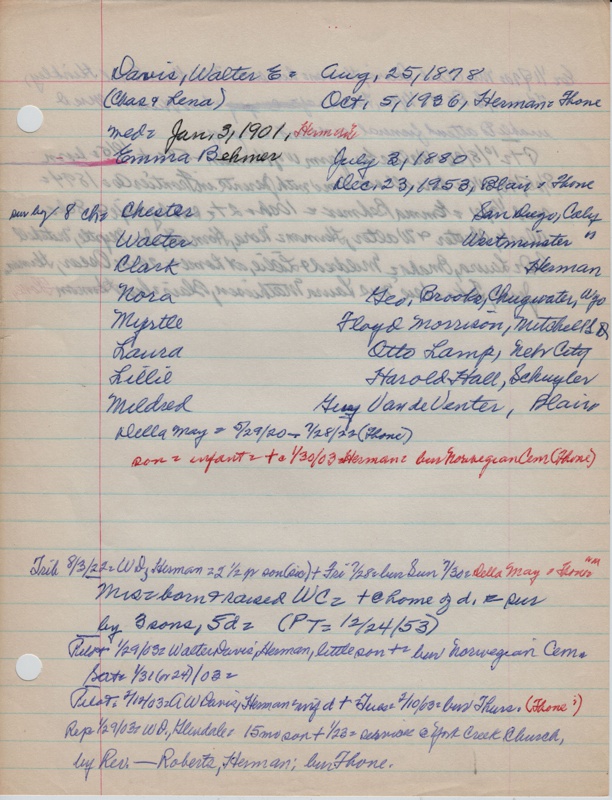 Davis, Walter E = Aug, 25, 1878
(Chas & Lena) Oct, 5, 1936, Herman = Fhone
med = Jan, 3, 1901, Herman
Emma Behmer July 3, 1880
Dec. 23, 1953, Blair = Fhone
sur by 8 ch = Chester San Diego, Caly
Walter Westminster "
Clark Herman
Nora Geo, Brooks, Chugwater, Wyo
Myrtle Floyd Morrison, Mitchell S D
Laura Otto Lamp, Nebr City
Lillie Harold Hall, Schuyler
Mildred Guy Van de Venter, Blair
Della May = 5/29/20 - 7/28/22 (Fhone)
son = infant = + c 1/30/03 = Herman = bur Norwegian Cem (Fhone)
Trib 8/3/22 = WD, Herman = 2 1/2 yr son (sic) + Fri 7/28 = bur Sun 7/30 = Della May = Fhone
Mrs = born & raised WC = + c home of d. = sur
by 3 sons, 5 d = (PT = 12/24/53)
Pilot 1/29/03 = Walter Davis, Herman, little son + = bur Norwegian Cem =
1/31 (or 24)/03 =
Pilot, 2/12/03 = A W Davis, Herman = inf d + Tues = 2/10/03 = bur Thurs. (Fhone?)
Rep 1/29/03 = WD, Glendale = 15 mo son + 1/23 = service @ York Creek Church,
by Rev. — Roberts, Herman; bur Fhone.